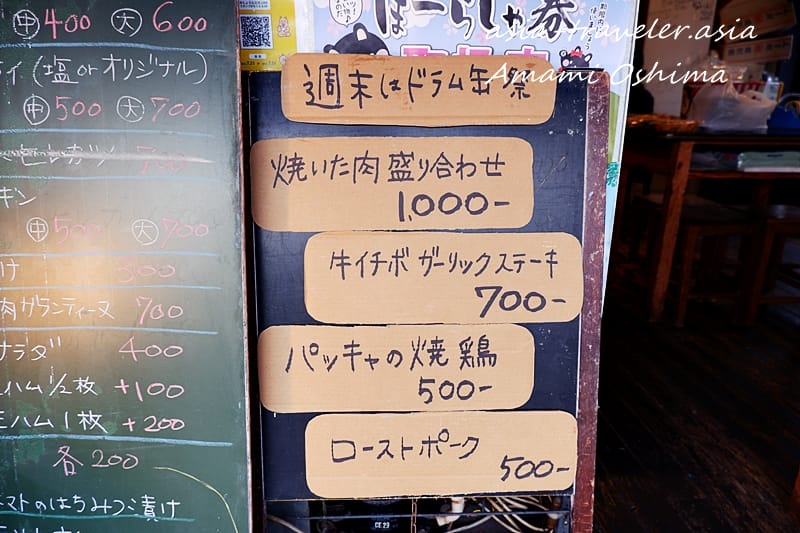 ㊥400 ㊛600
イ(塩orオリジナル)
㊥500 ㊛700
700
キン
㊥500 ㊛700
け 300
肉ガランティーヌ 700
サラダ 400
ハム1/2枚 +100
ハム1枚 +200
各200
マトのはちみつ漬け
ぼーらしゃ券
asia-traveler.asia
Amami Oshima
週末はドラム缶祭
焼いた肉盛り合わせ
1,000-
牛イチボガーリックステーキ
700-
パッキャの焼鶏
500-
ローストポーク
500-
CE 29